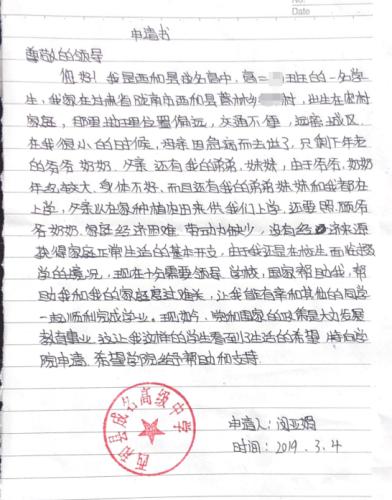 No:
Date
申请书
尊敬的领导
您好！我是西和县成名高中，高一 班的一名学
生，我家在甘肃省陇南市西和县蒿林乡 村，出生在农村
家庭，那里地理位置偏远，交通不便，远离城区
在我很小的时候，母亲因急病而去世了，只剩下年老
的爷爷奶奶、父亲还有我的弟弟、妹妹，由于爷爷、奶奶
年龄较大、身体不好、而且还有我的弟弟妹妹和我都在
上学，父亲以在家种植农田来供我们上学，还要照顾爷
爷奶奶，家庭经济困难，劳动力缺少，没有经济来源
换得家庭正常生活的基本开支，由于我还是在校生面临辍
学的情况，现在十分需要领导，学校，国家帮助我，帮
助我和我的家庭度过难关，让我能有幸和其他的同学
一起顺利完成学业。现如今，党和国家的政策是大力发展
教育事业，这让我这样的学生看到了生活的希望，特向学
院申请，希望学院给予帮助和支持
西和县成名高级中学
申请人：闵亚娟
时间：2019.3.4